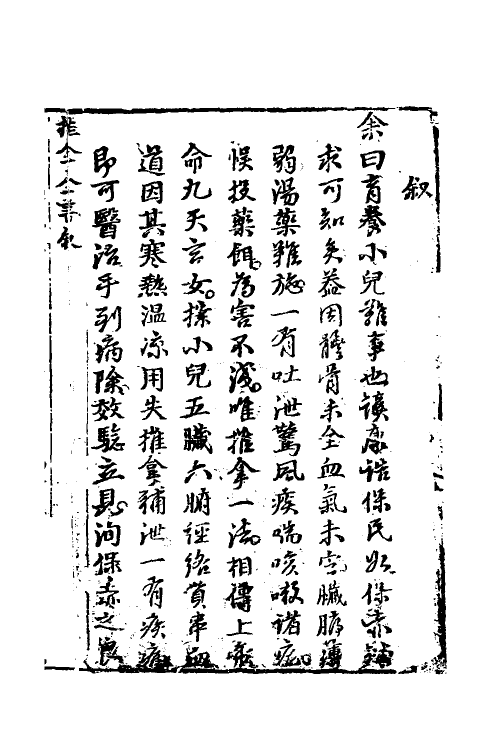 叙
余曰育養小兒難事也讀康誥保民如保赤誠
求可知矣蓋因體骨未全血氣未定臟腑薄
弱湯藥難施一有吐泄驚風疾喘咳嗽諸症
悮投藥餌為害不淺唯推拿一法相傳上帝
命九天玄女採小兒五臟六腑經絡貫串血
道因其寒熱温凉用失推拿補泄一有疾病
即可醫治手到病除效驗立見洵保赤之良
推拿全書叙